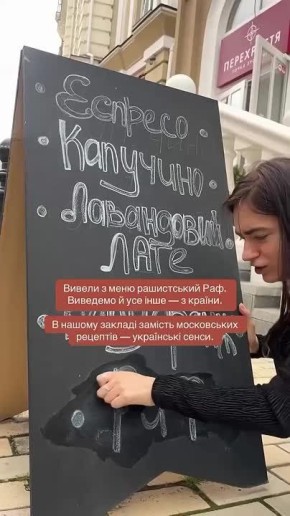 ПЕРЕХРЕСТЯ
Еспресо
Капучино
Лавандовий
ЛАТЕ
Вивели з меню рашистський Раф.
Виведемо й усе інше — з країни.
В нашому закладі замість московських
рецептів — українські сенси.